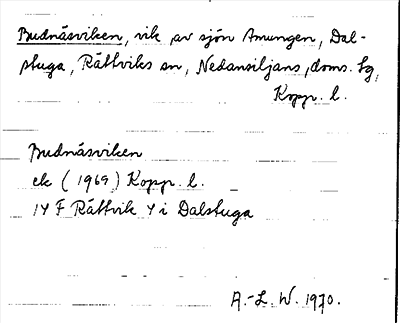 Budnäsviken, vik av sjön Amungen, Dal-
stuga, Rättviks sn, Nedansiljans doms. lg,
Kopp. l.
Budnäsviken
ek (1969) Kopp. l.
14 F Rättvik 4 i Dalstuga
A.-L. W. 1970.